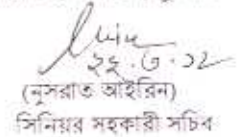 ২২.৩.১২
(নুসরাত আইরিন)
সিনিয়র সহকারী সচিব